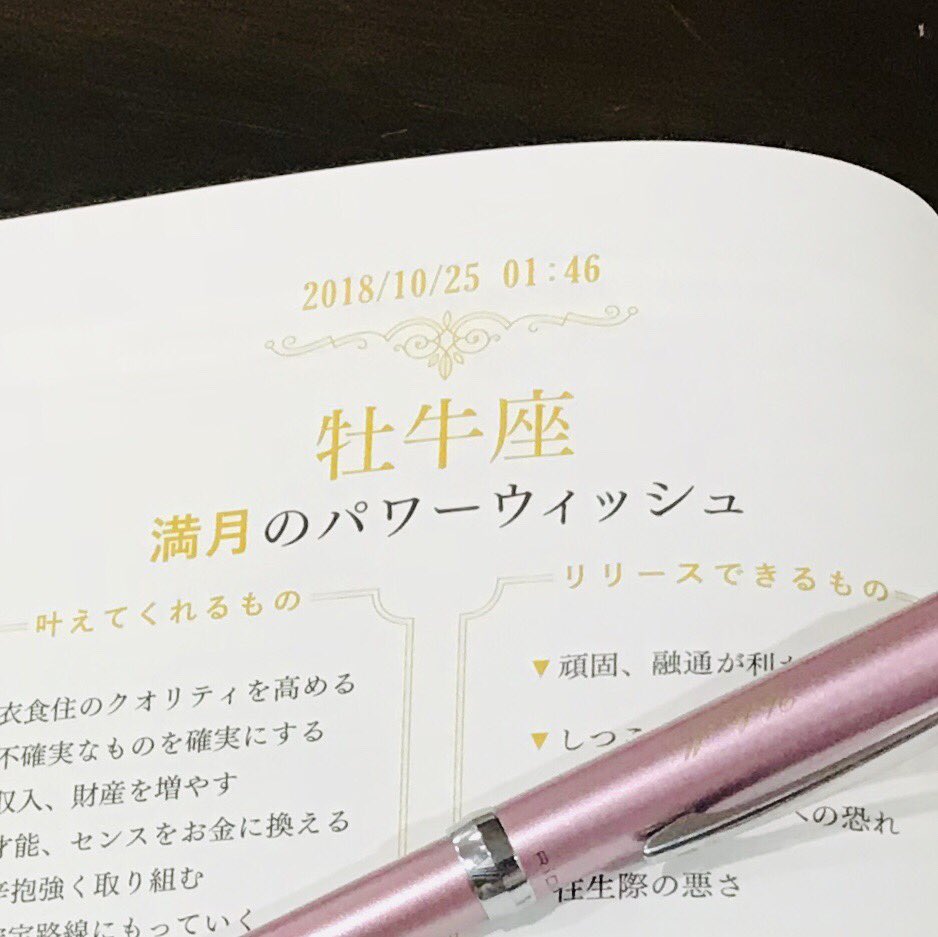 2018/10/25 01:46
牡牛座
満月のパワーウィッシュ
叶えてくれるもの
衣食住のクオリティを高める
不確実なものを確実にする
収入、財産を増やす
才能、センスをお金に換える
辛抱強く取り組む
安定路線にもっていく
リリースできるもの
▼頑固、融通が利か
▼しつこ
への恐れ
往生際の悪さ